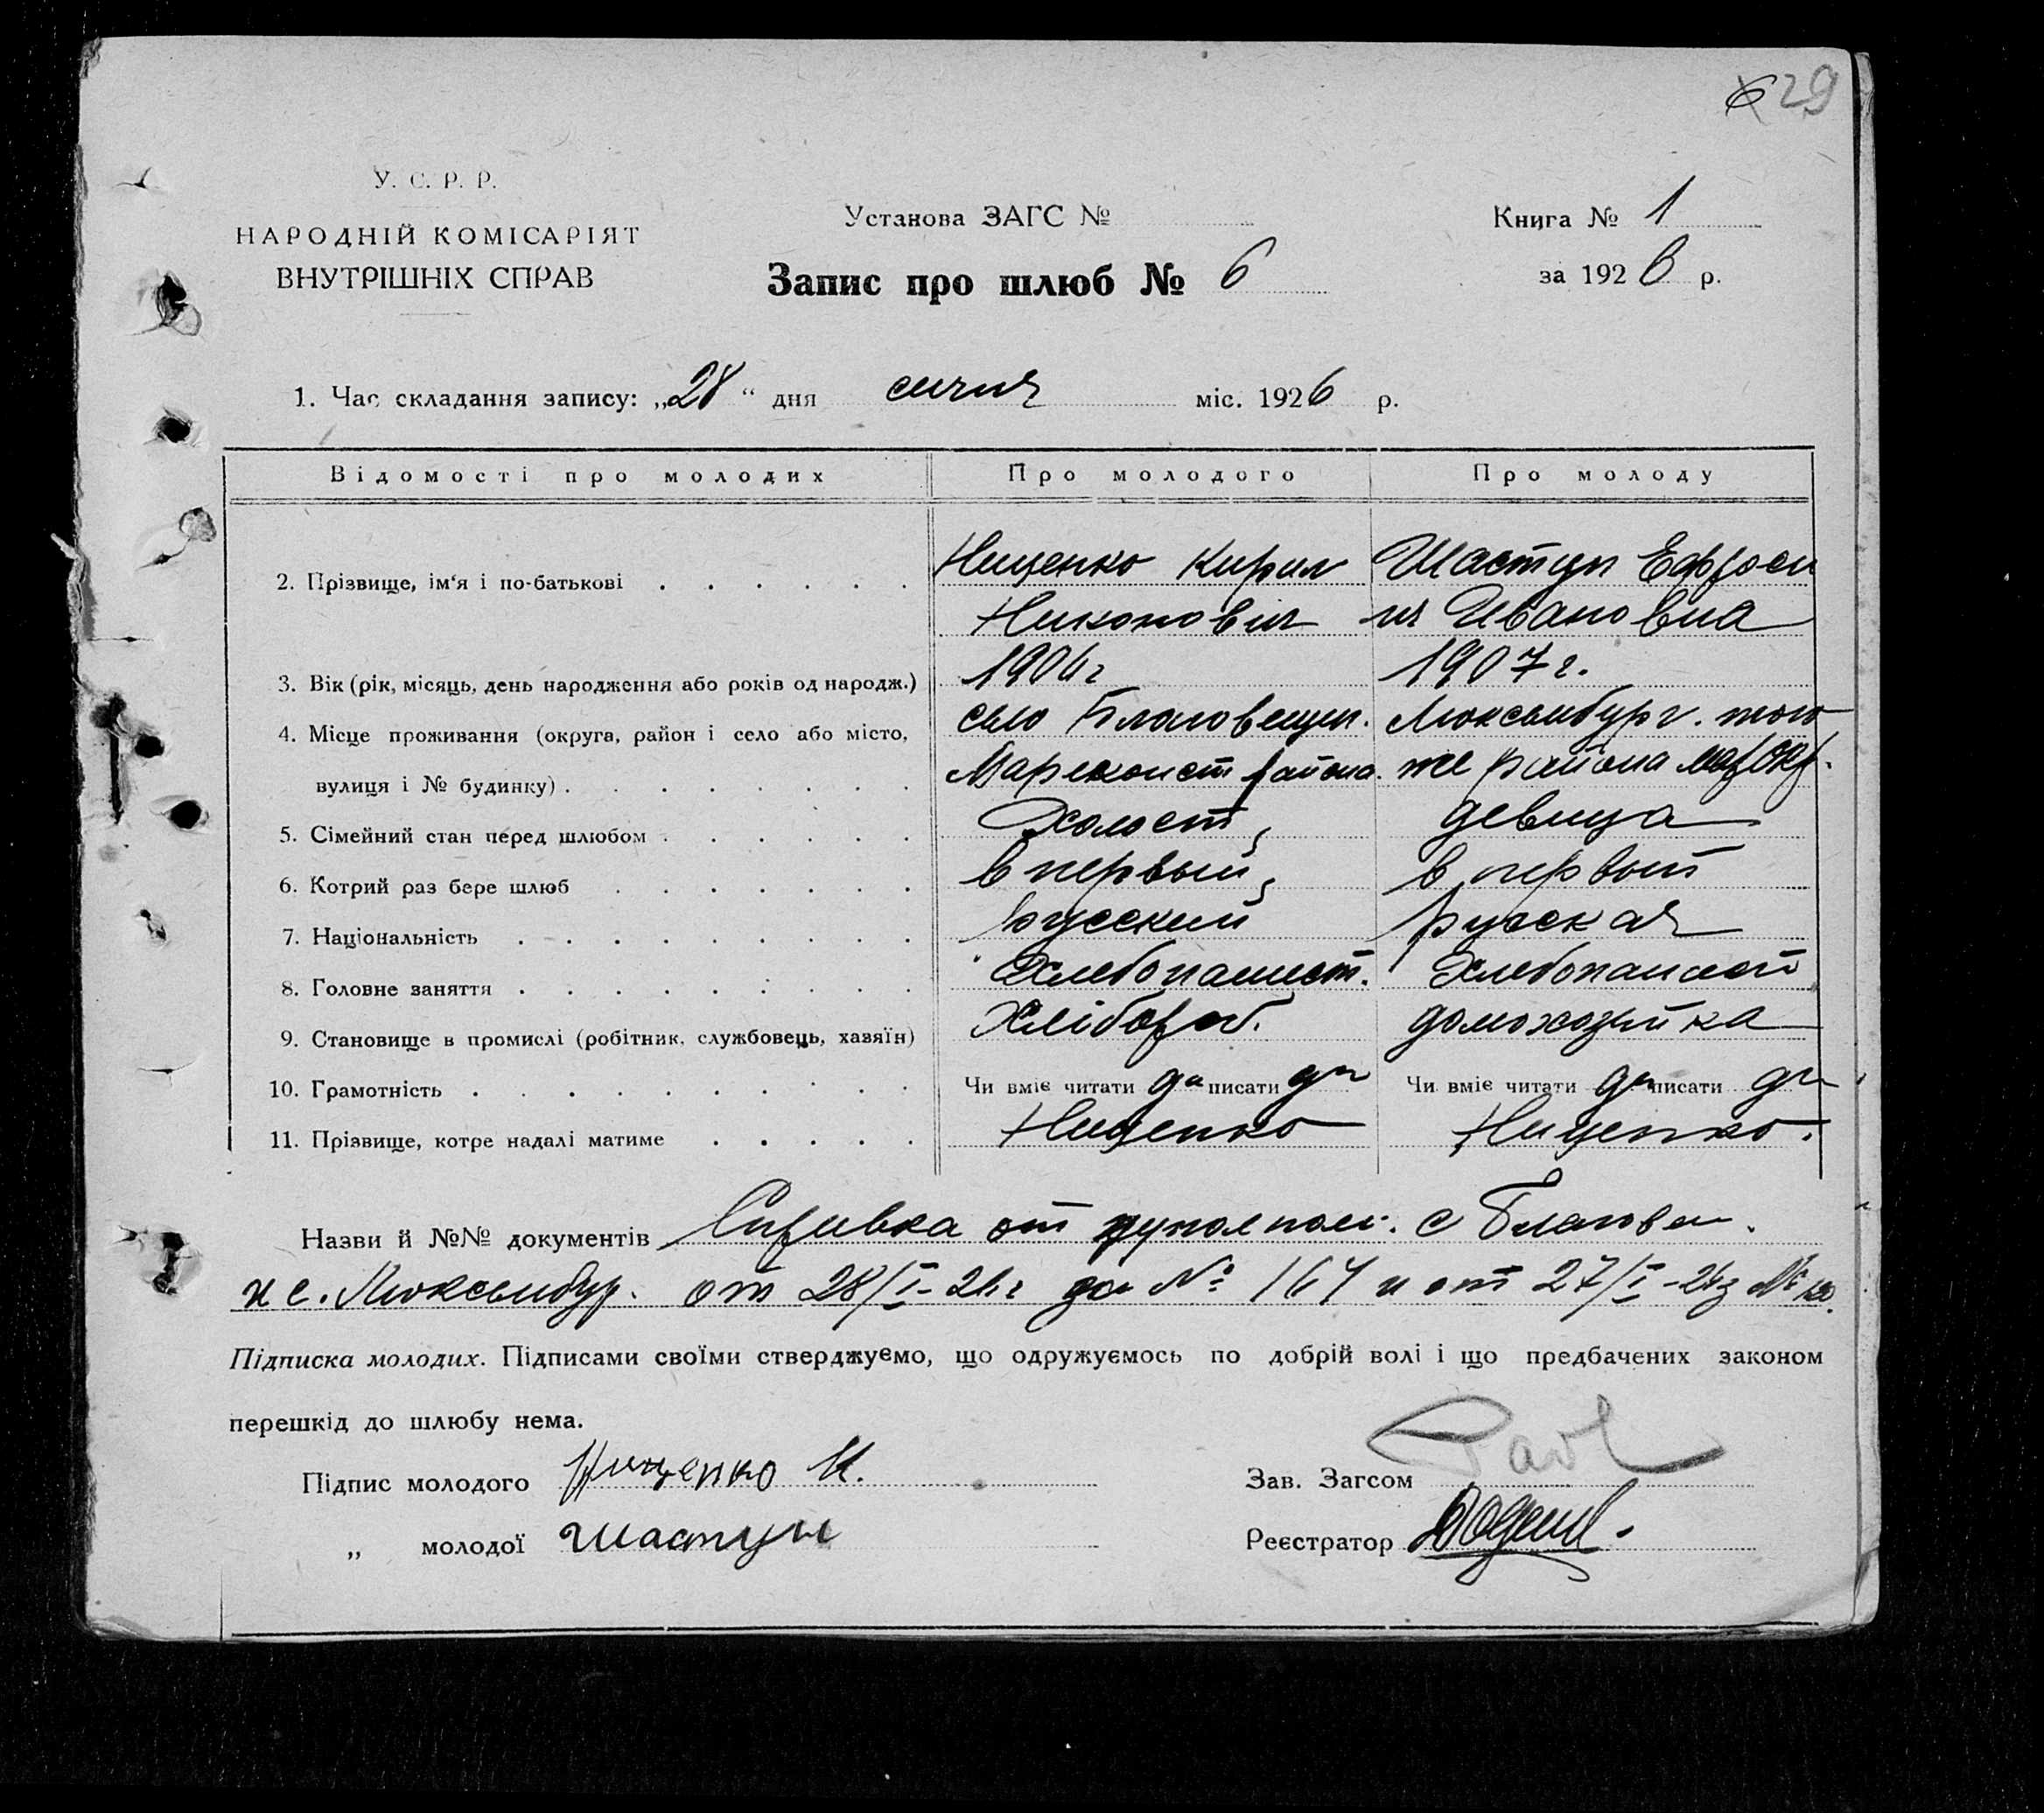 6 29
У. С. Р. Р.
НАРОДНІЙ КОМІСАРІЯТ
ВНУТРІШНІХ СПРАВ
Установа ЗАГС №
Запис про шлюб № 6
Книга № 1
за 1926 р.
1. Час складання запису: „28“ дня сичня міс. 1926 р.
Відомості про молодих Про молодого Про молоду
2. Прізвище, ім'я і по-батькові Нищенко Кирил Шастун Ефроси
Никонович ия Ивановна
3. Вік (рік, місяць, день народження або років од народж.) 1904 г 1907 г.
4. Місце проживання (округа, район і село або місто, село Благовещен. Люксембург. того
вулиця і № будинку) района. же района Мар. Окр.
5. Сімейний стан перед шлюбом Холост девица
6. Котрий раз бере шлюб в первый в первый
7. Національність русский русская
8. Головне заняття Хлебопашест. Хлебопашест
9. Становище в промислі (робітник, службовець, хазяїн) Хлібороб. домохозяйка
10. Грамотність Чи вміє читати да писати да Чи вміє читати да писати да
11. Прізвище, котре надалі матиме Нищенко Нищенко.
Назви й №№ документів Справка от с Благовещ.
и с. Люксембур. от 28/I-26 г за № 167 и от 27/I-26 №
Підписка молодих. Підписами своїми стверджуємо, що одружуємось по добрій волі і що предбачених законом
перешкід до шлюбу нема.
Підпис молодого Нищенко К.
Зав. Загсом
„ молодої Шастун
Реєстратор